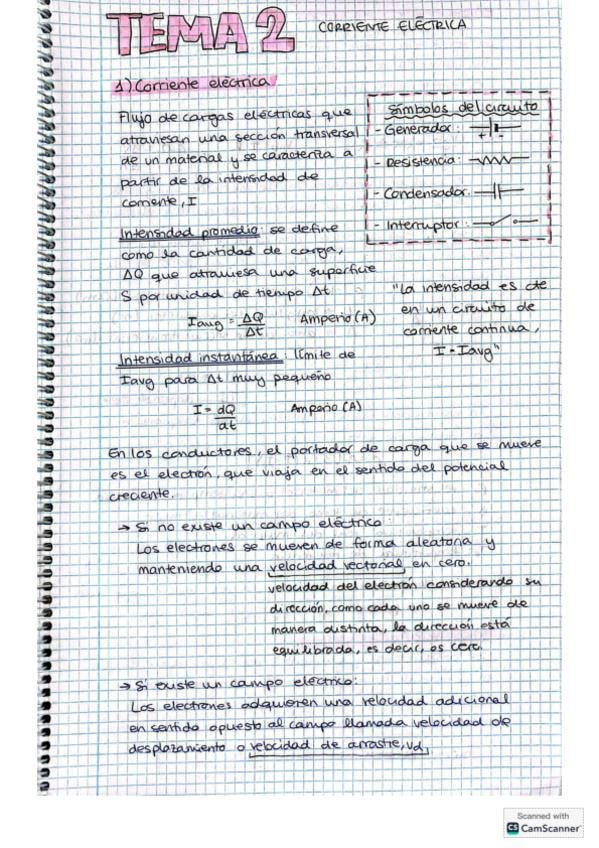 TEMA 2 CORRIENTE ELÉCTRICA
1) Corriente eléctrica
Flujo de cargas eléctricas que
atraviesan una sección transversal
de un material y se caracteriza a
partir de la intensidad de
corriente, I
Símbolos del circuito
- Generador:
+ -
- Resistencia:
- Condensador:
- Interruptor:
Intensidad promedio: se define
como la cantidad de carga,
ΔQ que atraviesa una superficie
S por unidad de tiempo Δt
Iavg = ΔQ/Δt Amperio (A)
"La intensidad es cte
en un circuito de
corriente continua,
I = Iavg"
Intensidad instantánea: límite de
Iavg para Δt muy pequeño
I = dQ/dt Amperio (A)
En los conductores, el portador de carga que se mueve
es el electrón, que viaja en el sentido del potencial
creciente.
→ Si no existe un campo eléctrico:
Los electrones se mueven de forma aleatoria y
manteniendo una velocidad vectorial en cero.
velocidad del electrón considerando su
dirección, como cada uno se mueve de
manera distinta, la dirección está
equilibrada, es decir, es cero.
→ Si existe un campo eléctrico:
Los electrones adquieren una velocidad adicional
en sentido opuesto al campo llamada velocidad de
desplazamiento o velocidad de arrastre, vd.
Scanned with
CS CamScanner